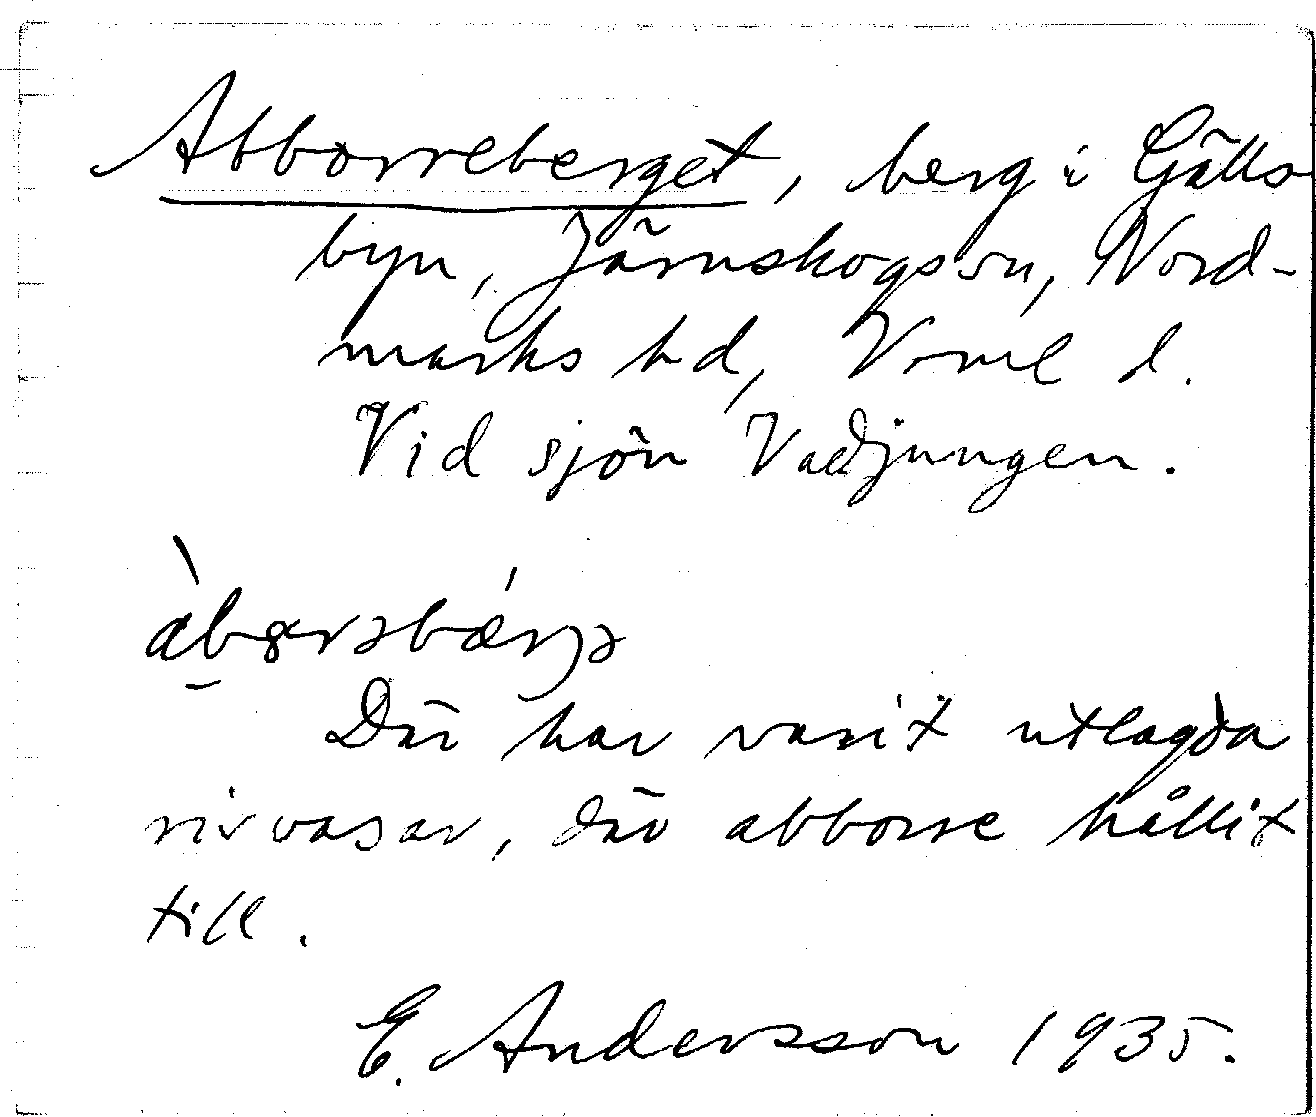 Abborreberget, berg i Gälls-
byn, Järnskogs sn, Nord-
marks hd, Vrml d.
Vid sjön Vadjungen.
àbɞrəbærjə
Där har varit utlagda
risvasar, där abborre hållit
till.
E. Andersson 1935.